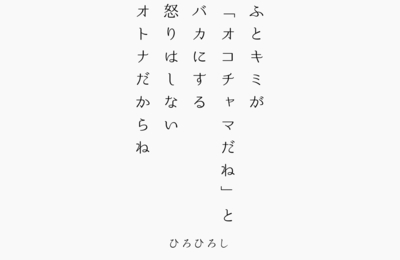 ふとキミが
「オコチャマだね」と
バカにする
怒りはしない
オトナだからね
ひろひろし